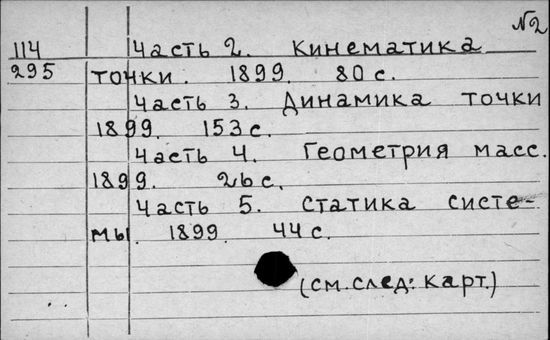 №2
114 Часть 2. Кинематика
295 точки. 1899. 80 с.
Часть 3. Динамика точки
1899. 153 с.
Часть 4. Геометрия масс.
1899. 26 с.
Часть 5. Статика систе-
мы. 1899. 44 с.
(см. след. карт.)